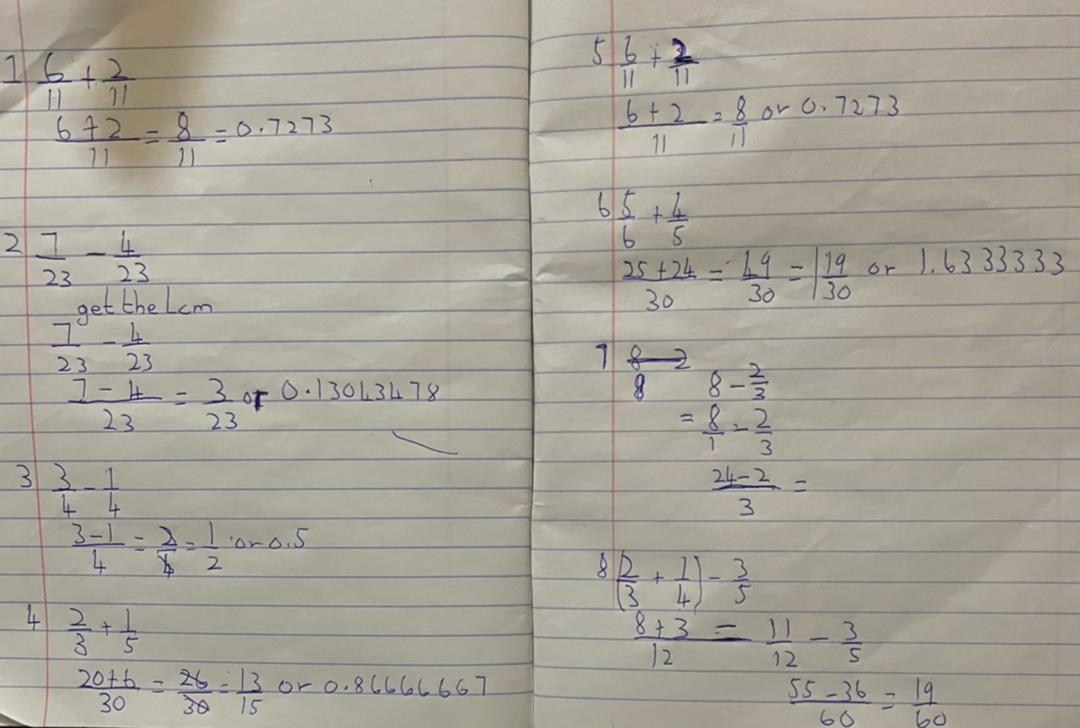 1 6/11 + 2/11
6+2/11 = 8/11 = 0.7273
2 7/23 - 4/23
get the Lcm
7/23 - 4/23
7-4/23 = 3/23 or 0.13043478
3 3/4 - 1/4
3-1/4 = 2/4 = 1/2 or 0.5
4 2/3 + 1/5
20+6/30 = 26/30 = 13/15 or 0.86666667
5 6/11 + 2/11
6+2/11 = 8/11 or 0.7273
6 5/6 + 4/5
25+24/30 = 49/30 = 1 19/30 or 1.6333333
7 8 - 2/3
= 8/1 - 2/3
24-2/3 =
8 (2/3 + 1/4) - 3/5
8+3/12 = 11/12 - 3/5
55-36/60 = 19/60